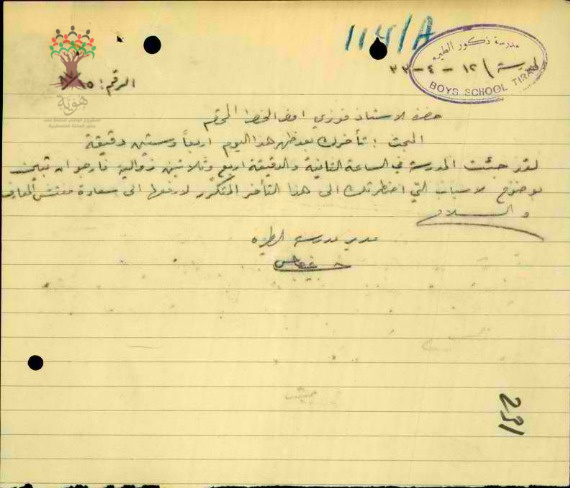 1151/A
مدرسة ذكور الطيرة
BOYS SCHOOL TIRAH
١٢ - ٤ - ٣٣
الرقم: ١٥
هوية
حضرة الاستاذ فوزي المحترم
المبحث: تأخرك بعد ظهر هذا اليوم اربعاً وستين دقيقة
لقد جئت المدرسة في الساعة الثانية والدقيقة اربع وثلاثين زوالين فارجو ان تبين
بوضوح الاسباب التي اضطرتك الى هذا التأخر المتكرر لارفعها الى سعادة مفتش المعارف
والسلام
مدير مدرسة الطيره
231